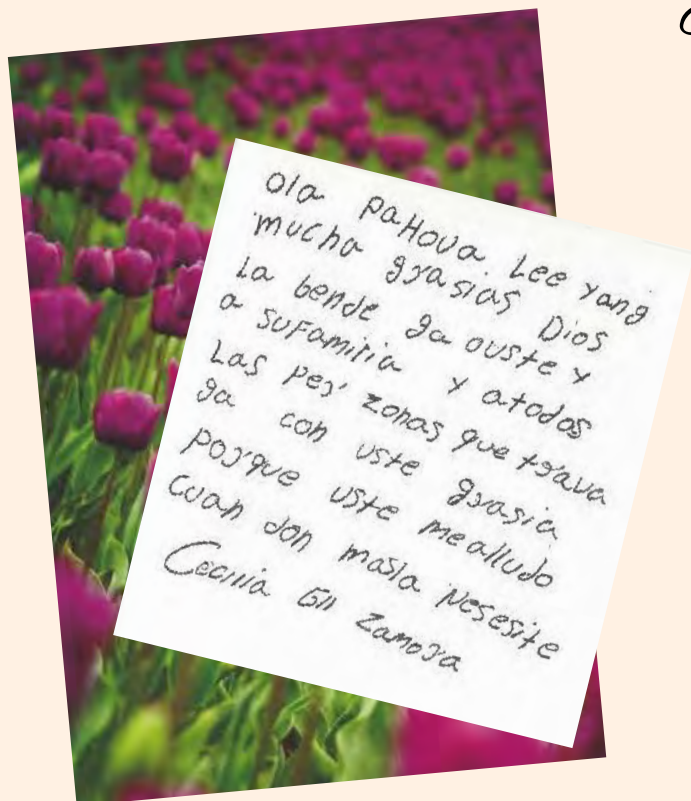 ola paHova Lee yang
mucha grasias Dios
la bende ga ouste y
a sufamilia y atodos
Las per zonas que trava
ga con uste grasia
porque uste mealludo
cuan don masla Nesesite
Cecilia Gil Zamora